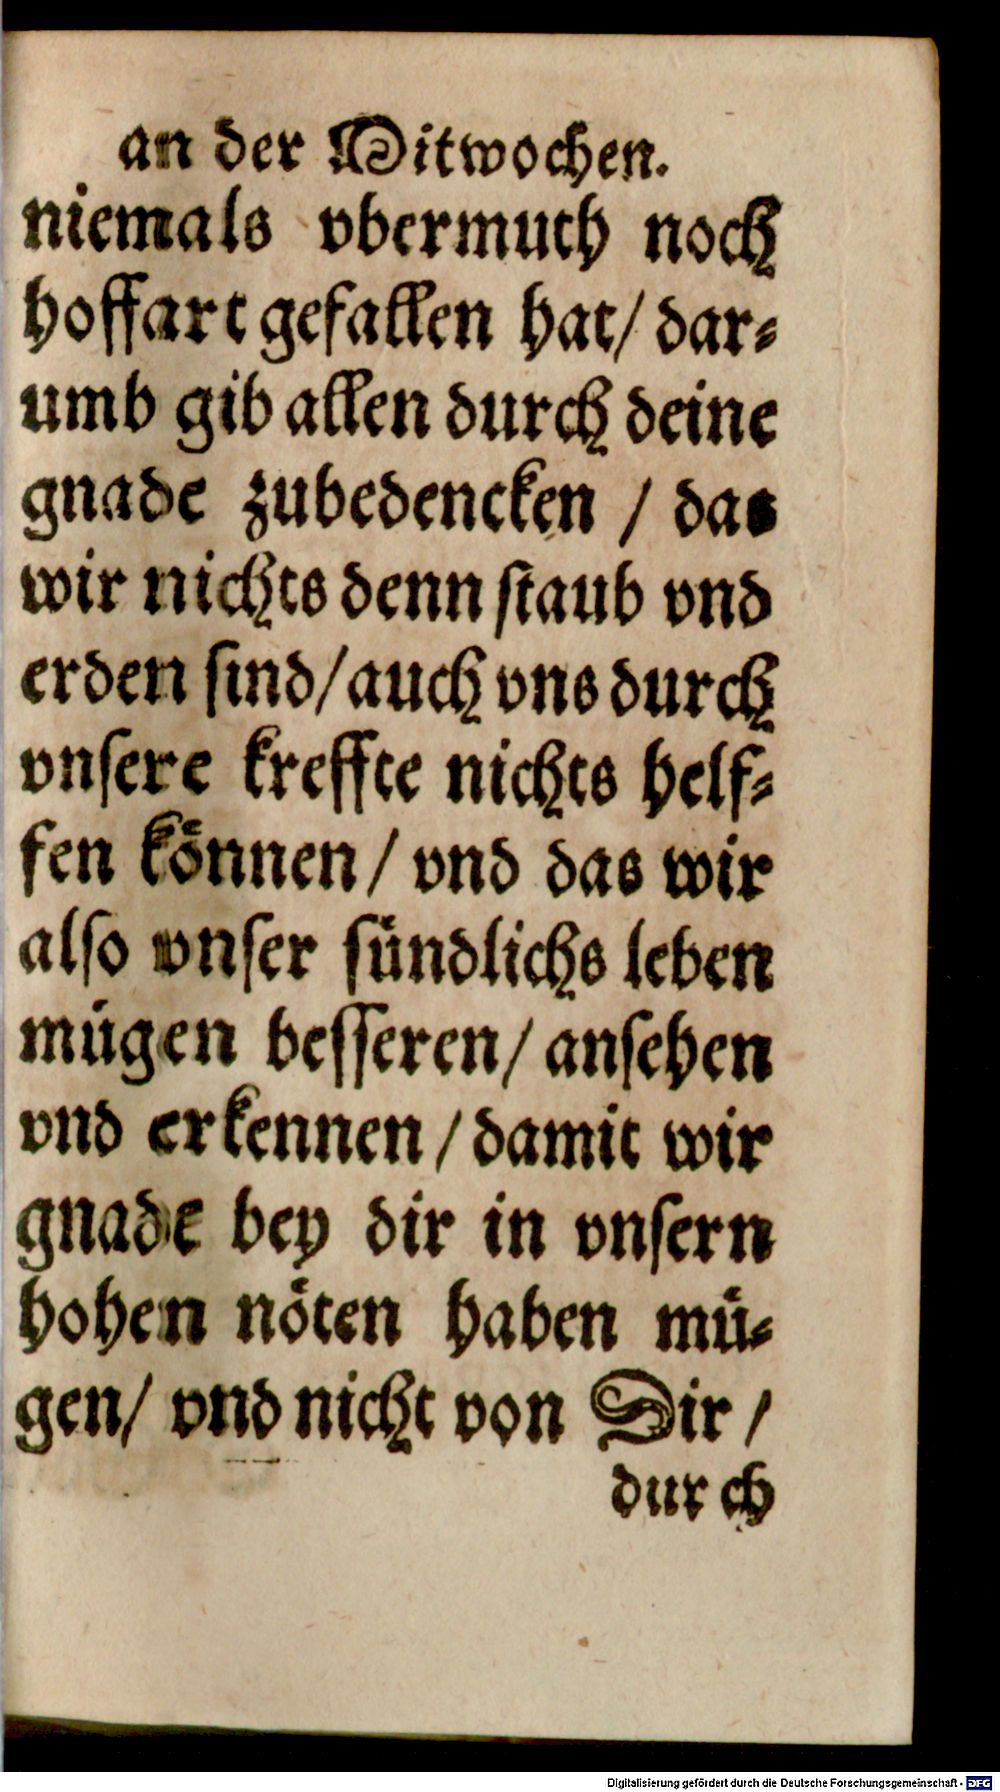 an der Mitwochen.
niemals vbermuth noch
hoffart gefallen hat/ dar-
umb gib allen durch deine
gnade zubedencken / das
wir nichts denn staub vnd
erden sind/ auch vns durch
vnsere kreffte nichts helf-
fen können/ vnd das wir
also vnser sündlichs leben
mügen besseren/ ansehen
vnd erkennen/ damit wir
gnade bey dir in vnsern
hohen nöten haben mü-
gen/ vnd nicht von Dir /
durch
Digitalisierung gefördert durch die Deutsche Forschungsgemeinschaft - DFG